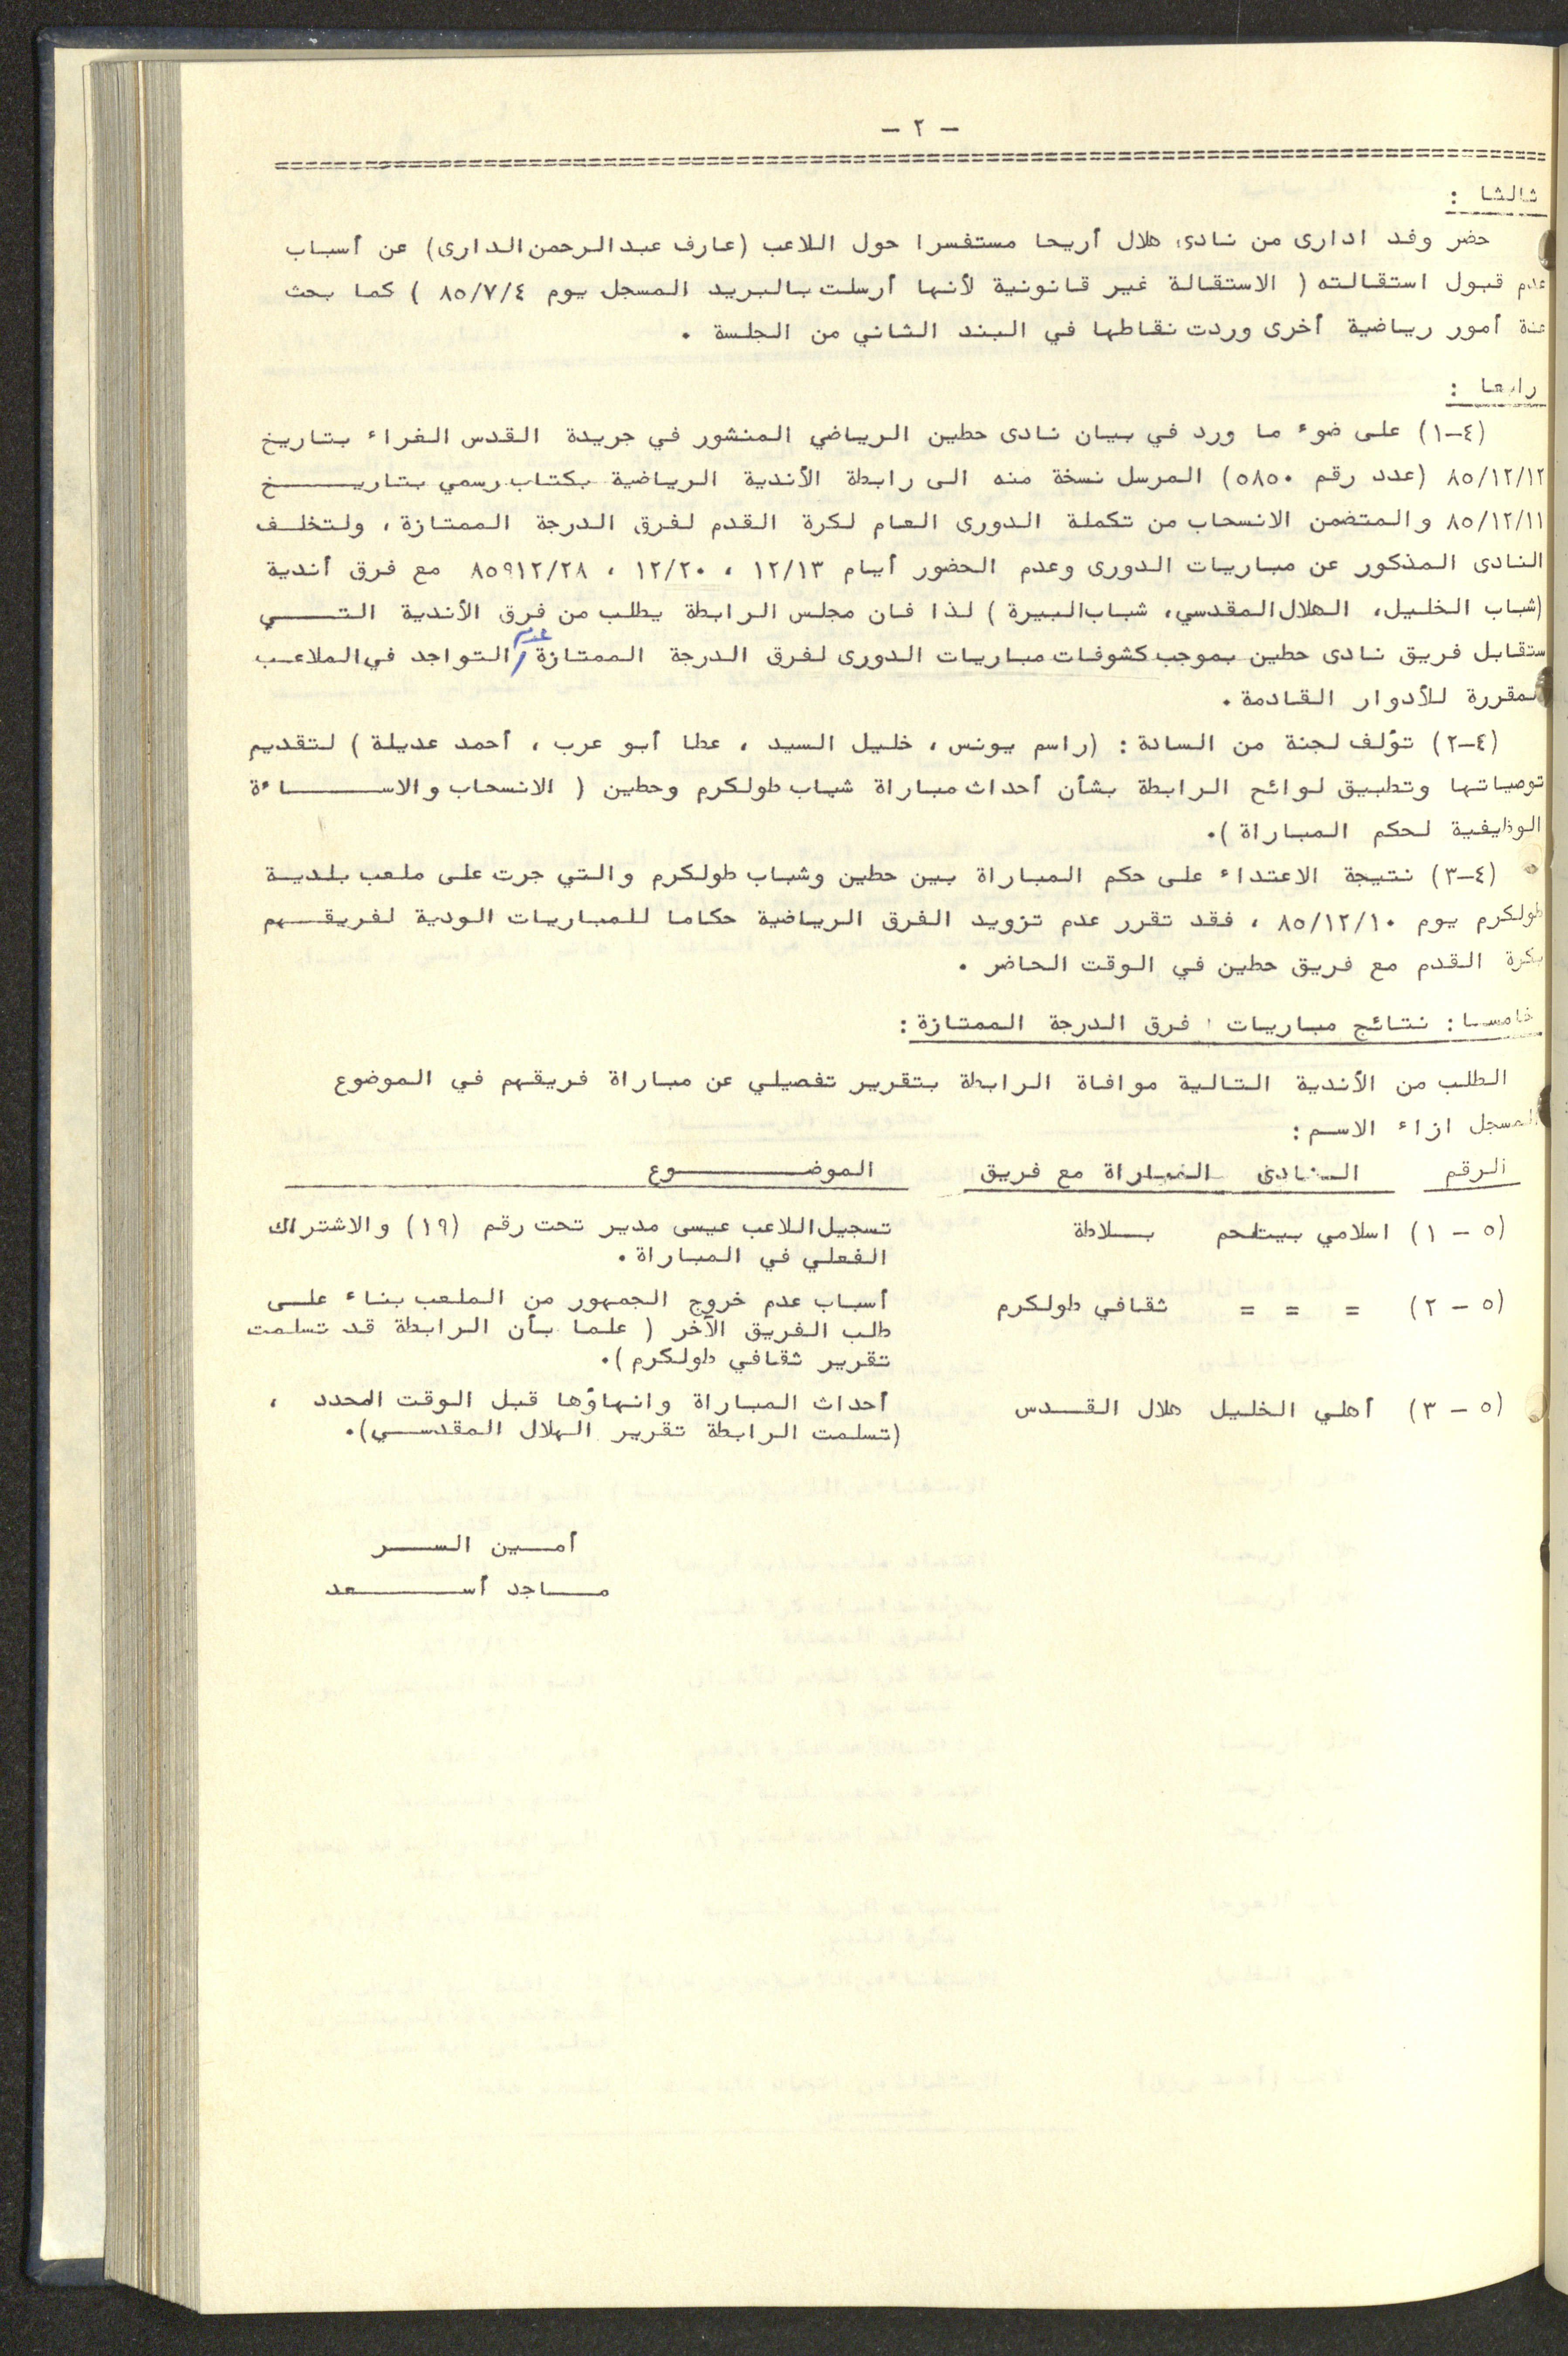 - ٢ -
ثالثا :
حضر وفد ادارى من نادى هلال أريحا مستفسرا حول اللاعب (عارف عبدالرحمن الدارى) عن أسباب
عدم قبول استقالته ( الاستقالة غير قانونية لأنها أرسلت بالبريد المسجل يوم ٨٥/٧/٤ ) كما بحث
عدة أمور رياضية أخرى وردت نقاطها في البند الثاني من الجلسة .
رابعا :
(٤-١) على ضوء ما ورد في بيان نادى حطين الرياضي المنشور في جريدة القدس الغراء بتاريخ
٨٥/١٢/١٢ (عدد رقم ٥٨٥٠) المرسل نسخة منه الى رابطة الأندية الرياضية بكتاب رسمي بتاريــــخ
٨٥/١٢/١١ والمتضمن الانسحاب من تكملة الدورى العام لكرة القدم لفرق الدرجة الممتازة ، ولتخلـف
النادى المذكور عن مباريات الدورى وعدم الحضور أيام ١٢/١٣ ، ١٢/٢٠ ، ٨٥٩١٢/٢٨ مع فرق أندية
(شباب الخليل، الهلال المقدسي، شباب البيرة ) لذا فان مجلس الرابطة يطلب من فرق الأندية التـــــي
ستقابل فريق نادى حطين بموجب كشوفات مباريات الدورى لفرق الدرجة الممتازة / عدم التواجد في الملاعـب
المقررة للأدوار القادمة .
(٤-٢) تؤلف لجنة من السادة : (راسم يونس ، خليل السيد ، عطا أبو عرب ، أحمد عديلة ) لتقديم
توصياتها وتطبيق لوائح الرابطة بشأن أحداث مباراة شباب طولكرم وحطين ( الانسحاب والاســــاءة
الوظيفية لحكم المباراة ).
(٤-٣) نتيجة الاعتداء على حكم المباراة بين حطين وشباب طولكرم والتي جرت على ملعب بلديـة
طولكرم يوم ٨٥/١٢/١٠ ، فقد تقرر عدم تزويد الفرق الرياضية حكاما للمباريات الودية لفريقــهم
بكرة القدم مع فريق حطين في الوقت الحاضر .
خامسا : نتائج مباريات فرق الدرجة الممتازة :
الطلب من الأندية التالية موافاة الرابطة بتقرير تفصيلي عن مباراة فريقهم في الموضوع
المسجل ازاء الاسـم :
الرقم النادى المباراة مع فريق الموضــــــــوع
(٥ - ١) اسلامي بيتلحم بـــلاطة تسجيل اللاعب عيسى مدير تحت رقم (١٩) والاشتراك
الفعلي في المباراة .
(٥ - ٢) = = = ثقافي طولكرم أسباب عدم خروج الجمهور من الملعب بناء علـى
طلب الفريق الآخر ( علما بأن الرابطة قد تسلمت
تقرير ثقافي طولكرم ).
(٥ - ٣) أهلي الخليل هلال القـــدس أحداث المباراة وانهاؤها قبل الوقت المحدد ،
(تسلمت الرابطة تقرير الهلال المقدســي).
أمـــين الســـر
مـــاجد أســـــعد